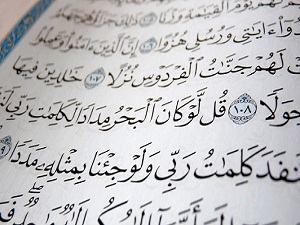 لَهُمْ يَوْمَ ٱلْقِيَٰمَةِ وَزْنًا
ءَايَٰتِى وَرُسُلِى هُزُوًا ١٠٦ إِنَّ ٱلَّذِينَ ءَامَنُوا۟ وَعَمِلُوا۟
لَهُمْ جَنَّٰتُ ٱلْفِرْدَوْسِ نُزُلًا ١٠٧ خَٰلِدِينَ فِيهَا
حِوَلًا ١٠٨ قُل لَّوْ كَانَ ٱلْبَحْرُ مِدَادًا لِّكَلِمَٰتِ رَبِّى
نفَدَ كَلِمَٰتُ رَبِّى وَلَوْ جِئْنَا بِمِثْلِهِۦ مَدَدًا